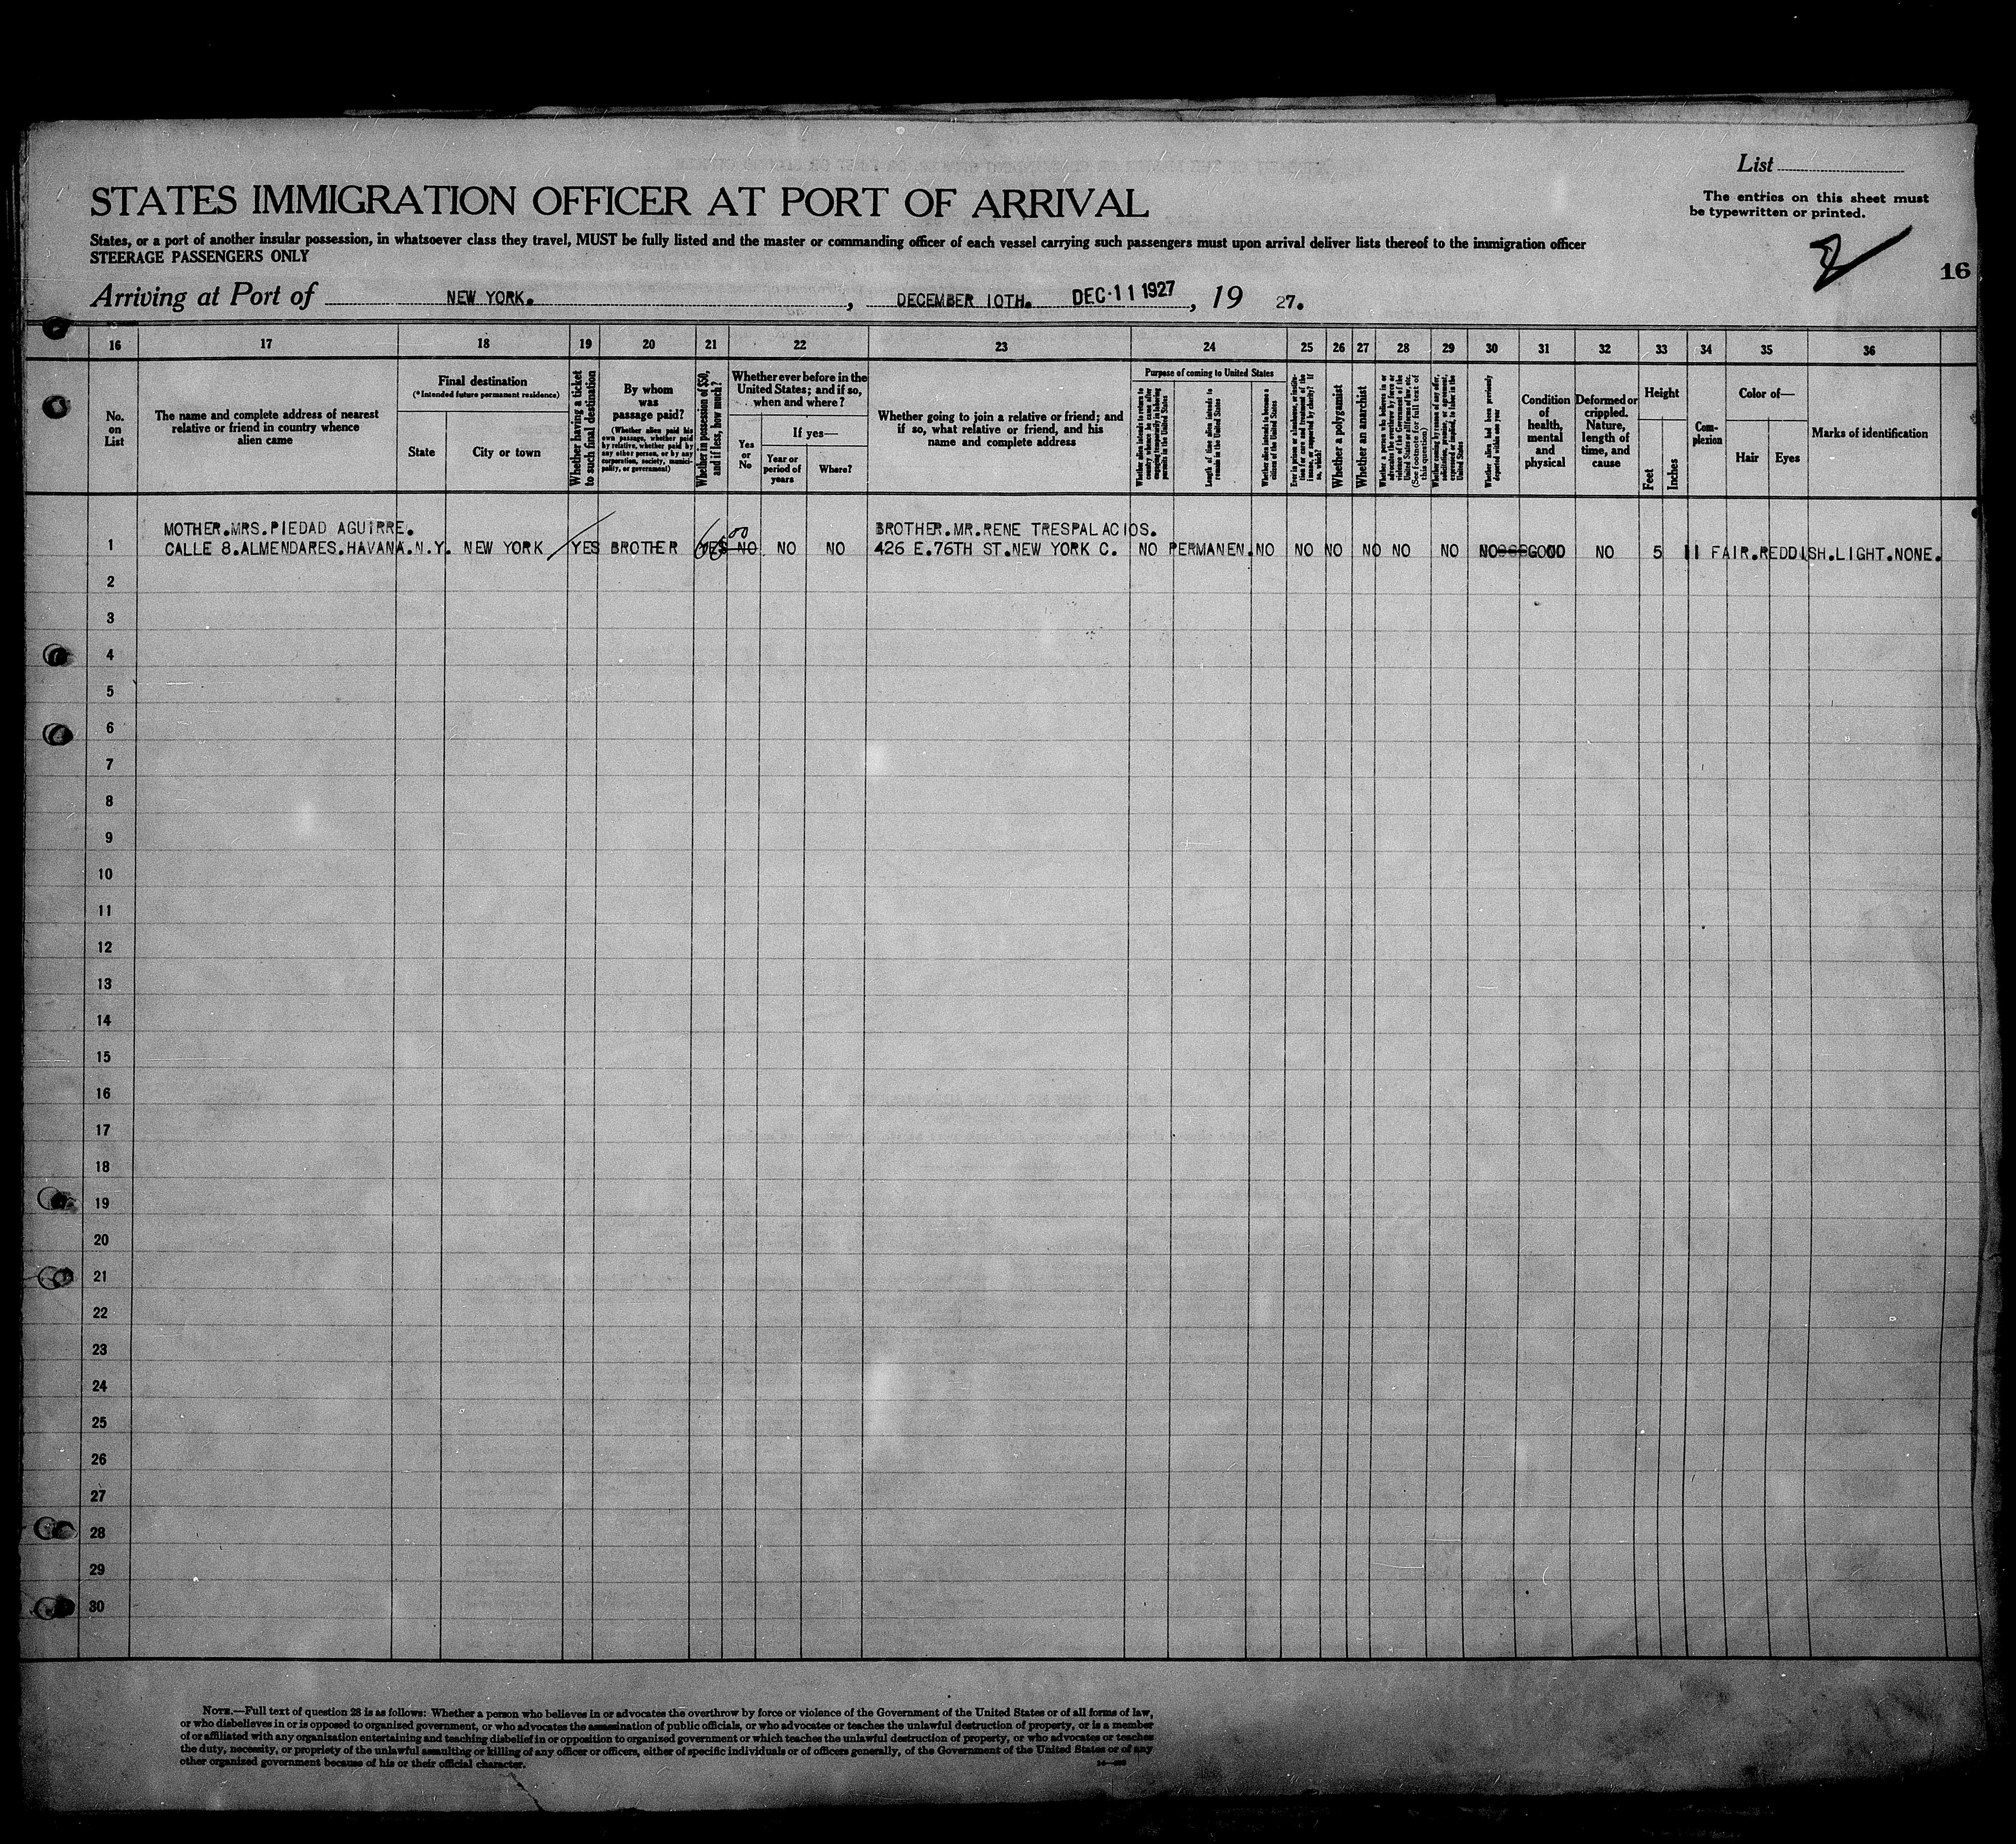 List
STATES IMMIGRATION OFFICER AT PORT OF ARRIVAL
The entries on this sheet must
be typewritten or printed.
States, or a port of another insular possession, in whatsoever class they travel, MUST be fully listed and the master or commanding officer of each vessel carrying such passengers must upon arrival deliver lists thereof to the immigration officer
STEERAGE PASSENGERS ONLY
16
Arriving at Port of NEW YORK. , DECEMBER 10TH. DEC 11 1927 , 19 27.
16 17 18 19 20 21 22 23 24 25 26 27 28 29 30 31 32 33 34 35 36
No. on List
The name and complete address of nearest relative or friend in country whence alien came
Final destination
(*Intended future permanent residence)
State
City or town
Whether having a ticket to such final destination
By whom was passage paid?
(Whether alien paid his own passage, whether paid by relative, whether paid by any other person, or by any corporation, society, municipality, or government)
Whether in possession of $50, and if less, how much?
Whether ever before in the United States; and if so, when and where?
Yes or No
If yes—
Year or period of years
Where?
Whether going to join a relative or friend; and if so, what relative or friend, and his name and complete address
Purpose of coming to United States
Whether alien intends to return to country whence he came after engaging temporarily in laboring pursuits in the United States
Length of time alien intends to remain in the United States
Whether alien intends to become a citizen of the United States
Ever in prison or almshouse, or institution for care and treatment of the insane, or supported by charity? If so, which?
Whether a polygamist
Whether an anarchist
Whether a person who believes in or advocates the overthrow by force or violence of the Government of the United States or all forms of law, etc. (See footnote for full text of this question)
Whether coming by reason of any offer, solicitation, promise, or agreement, expressed or implied, to labor in the United States
Whether alien had been previously deported within one year
Condition of health, mental and physical
Deformed or crippled. Nature, length of time, and cause
Height
Feet
Inches
Complexion
Color of—
Hair
Eyes
Marks of identification
MOTHER.MRS.PIEDAD AGUIRRE. BROTHER.MR.RENE TRESPALACIOS.
1 CALLE 8.ALMENDARES.HAVANA.N.Y. NEW YORK YES BROTHER YES NO NO NO 426 E.76TH ST.NEW YORK C. NO PERMANEN.NO NO NO NO NO NO NO GOOD NO 5 11 FAIR.REDDISH.LIGHT.NONE.
2
3
4
5
6
7
8
9
10
11
12
13
14
15
16
17
18
19
20
21
22
23
24
25
26
27
28
29
30
NOTE.—Full text of question 28 is as follows: Whether a person who believes in or advocates the overthrow by force or violence of the Government of the United States or of all forms of law,
or who disbelieves in or is opposed to organized government, or who advocates the assassination of public officials, or who advocates or teaches the unlawful destruction of property, or is a member
of or affiliated with any organization entertaining and teaching disbelief in or opposition to organized government or which teaches the unlawful destruction of property, or who advocates or teaches
the duty, necessity, or propriety of the unlawful assaulting or killing of any officer or officers, either of specific individuals or of officers generally, of the Government of the United States or of any
other organized government because of his or their official character.